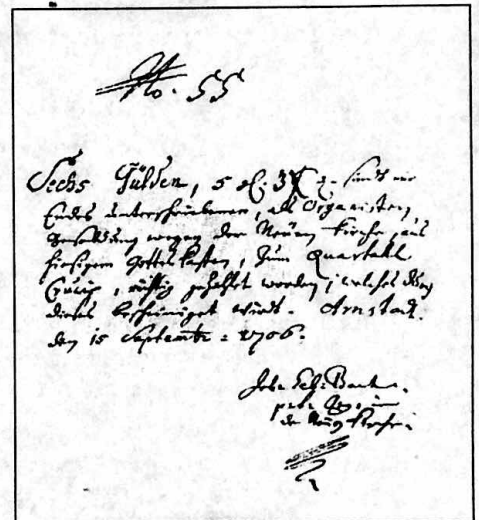 No. 55
Sechs Gülden, 5 gl. 3 ₰. sind mir
Endes unterschriebenen, als Organisten,
wegen der Neuen Kirche, aus
hiesigem Gottes Kasten, zum Quartal
Crucis, richtig gezahlt worden; welches
dieses bescheiniget wird. Arnstadt.
den 15 Septembr: 1706.
Joh. Seb: Bach.
der Neuen Kirche.